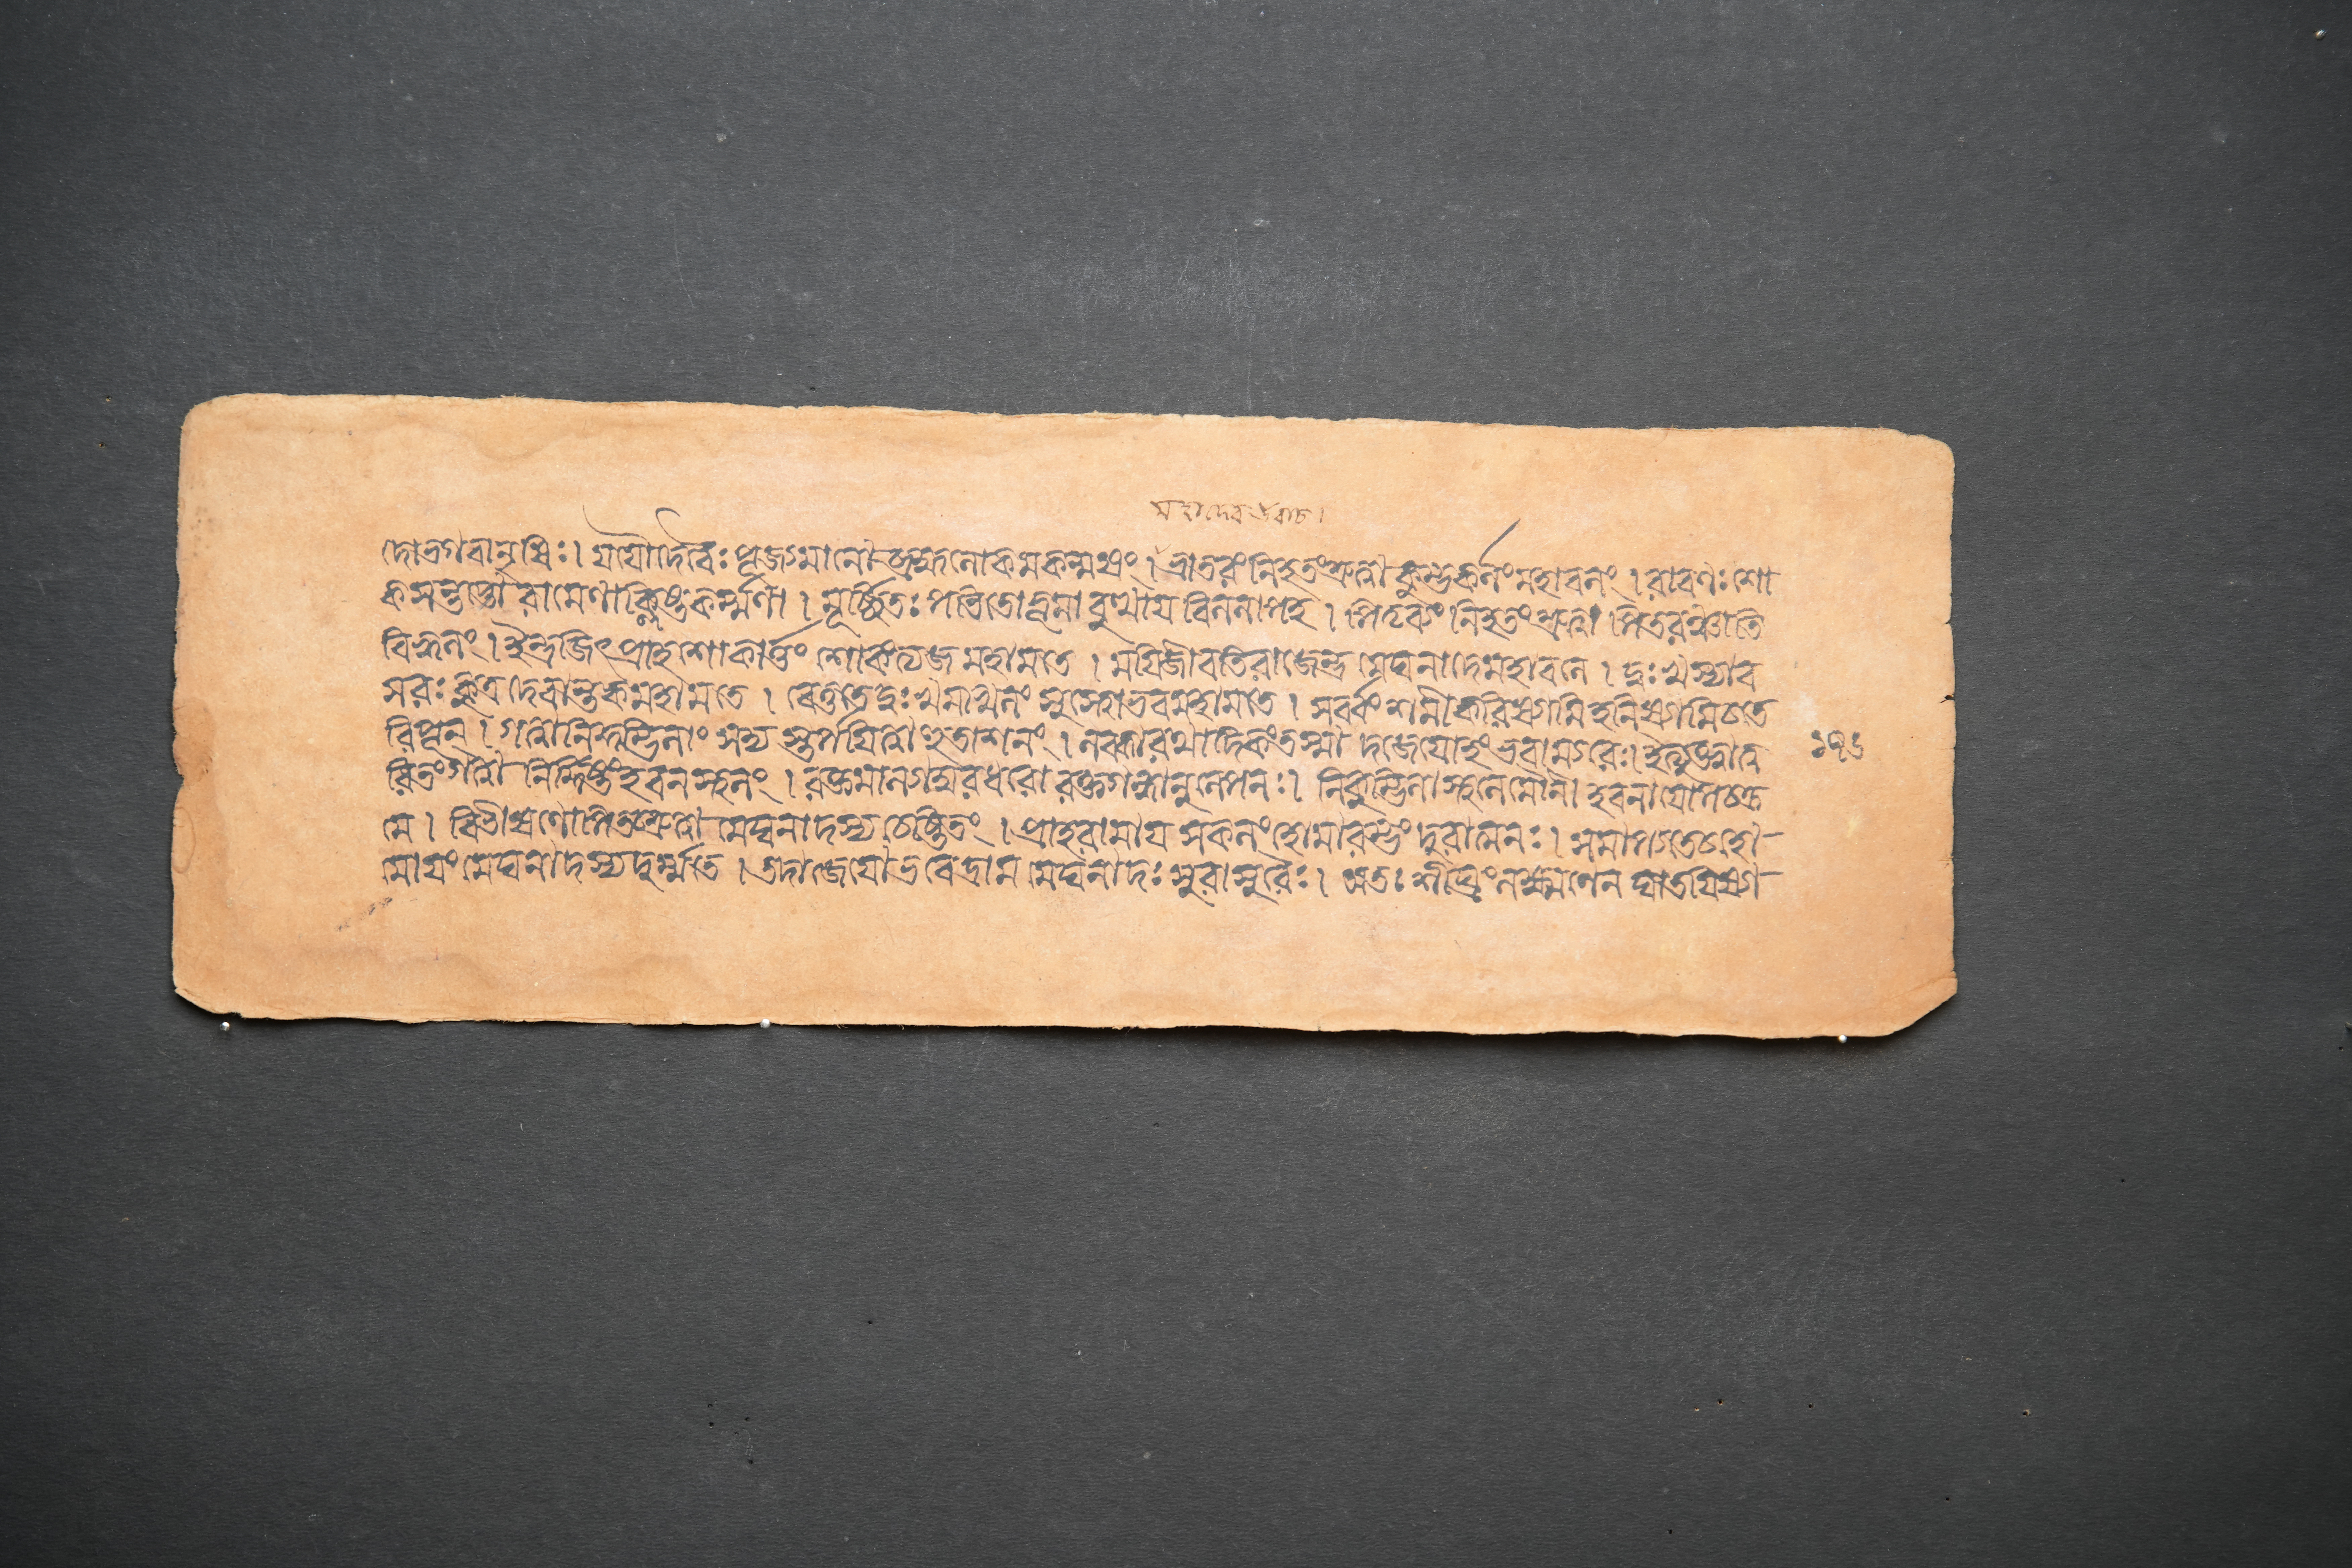 মহাদেব উবাচ।
দো ভগবানৃষিঃ। যযৌ দেবৈঃ পূজ্যমানো ব্রহ্মলোকমকল্মষং। ভ্রাতরং নিহতং শ্রুত্বা কুম্ভকর্ণং মহাবলং। রাবণঃ শো
কসন্তপ্তো রামেণাক্লিষ্টকর্ম্মণা। মূর্চ্ছিতঃ পতিতো ভূমাবুত্থায বিললাপ হ। পিতৃব্যং নিহতং শ্রুত্বা পিতরঞ্চাতি
বিহ্বলং। ইন্দ্রজিৎ প্রাহ শোকার্ত্তং শোকং ত্যজ মহামতে। মযি জীবতি রাজেন্দ্র মেঘনাদে মহাবলে। দুঃখস্যাব
সরঃ কুত্র দেবান্তক মহামতে। ব্যেতু তে দুঃখমখিলং সুস্থো ভব মহামতে। সর্ব্বং শমীকরিষ্যামি হনিষ্যামি চ তে
রিপূন্। গত্বা নিকুম্ভিলাং সদ্য স্তর্পযিত্বা হুতাশনং। লব্ধা রথাদিকং তস্মাদজেযোহং ভবাম্যরেঃ। ইত্যুক্ত্বা ত্ব
রিতং গত্বা নির্দ্দিষ্টং হবনস্থলং। রক্তমাল্যাম্বরধরো রক্তগন্ধানুলেপনঃ। নিকুম্ভিলাস্থলে মৌনী হবনাযোপচক্র
মে। বিভীষণোপি তচ্ছ্রুত্বা মেঘনাদস্য চেষ্টিতং। প্রাহ রামায সকলং হোমারম্ভং দুরাত্মনঃ। সমাপ্যতে চেদ্ধো-
মোযং মেঘনাদস্য দুর্ম্মতে। তদাজেযো ভবেদ্রাম মেঘনাদঃ সুরাসুরৈঃ। অতঃ শীঘ্রং লক্ষ্মণেন ঘাতযিষ্যা-
১৭৬